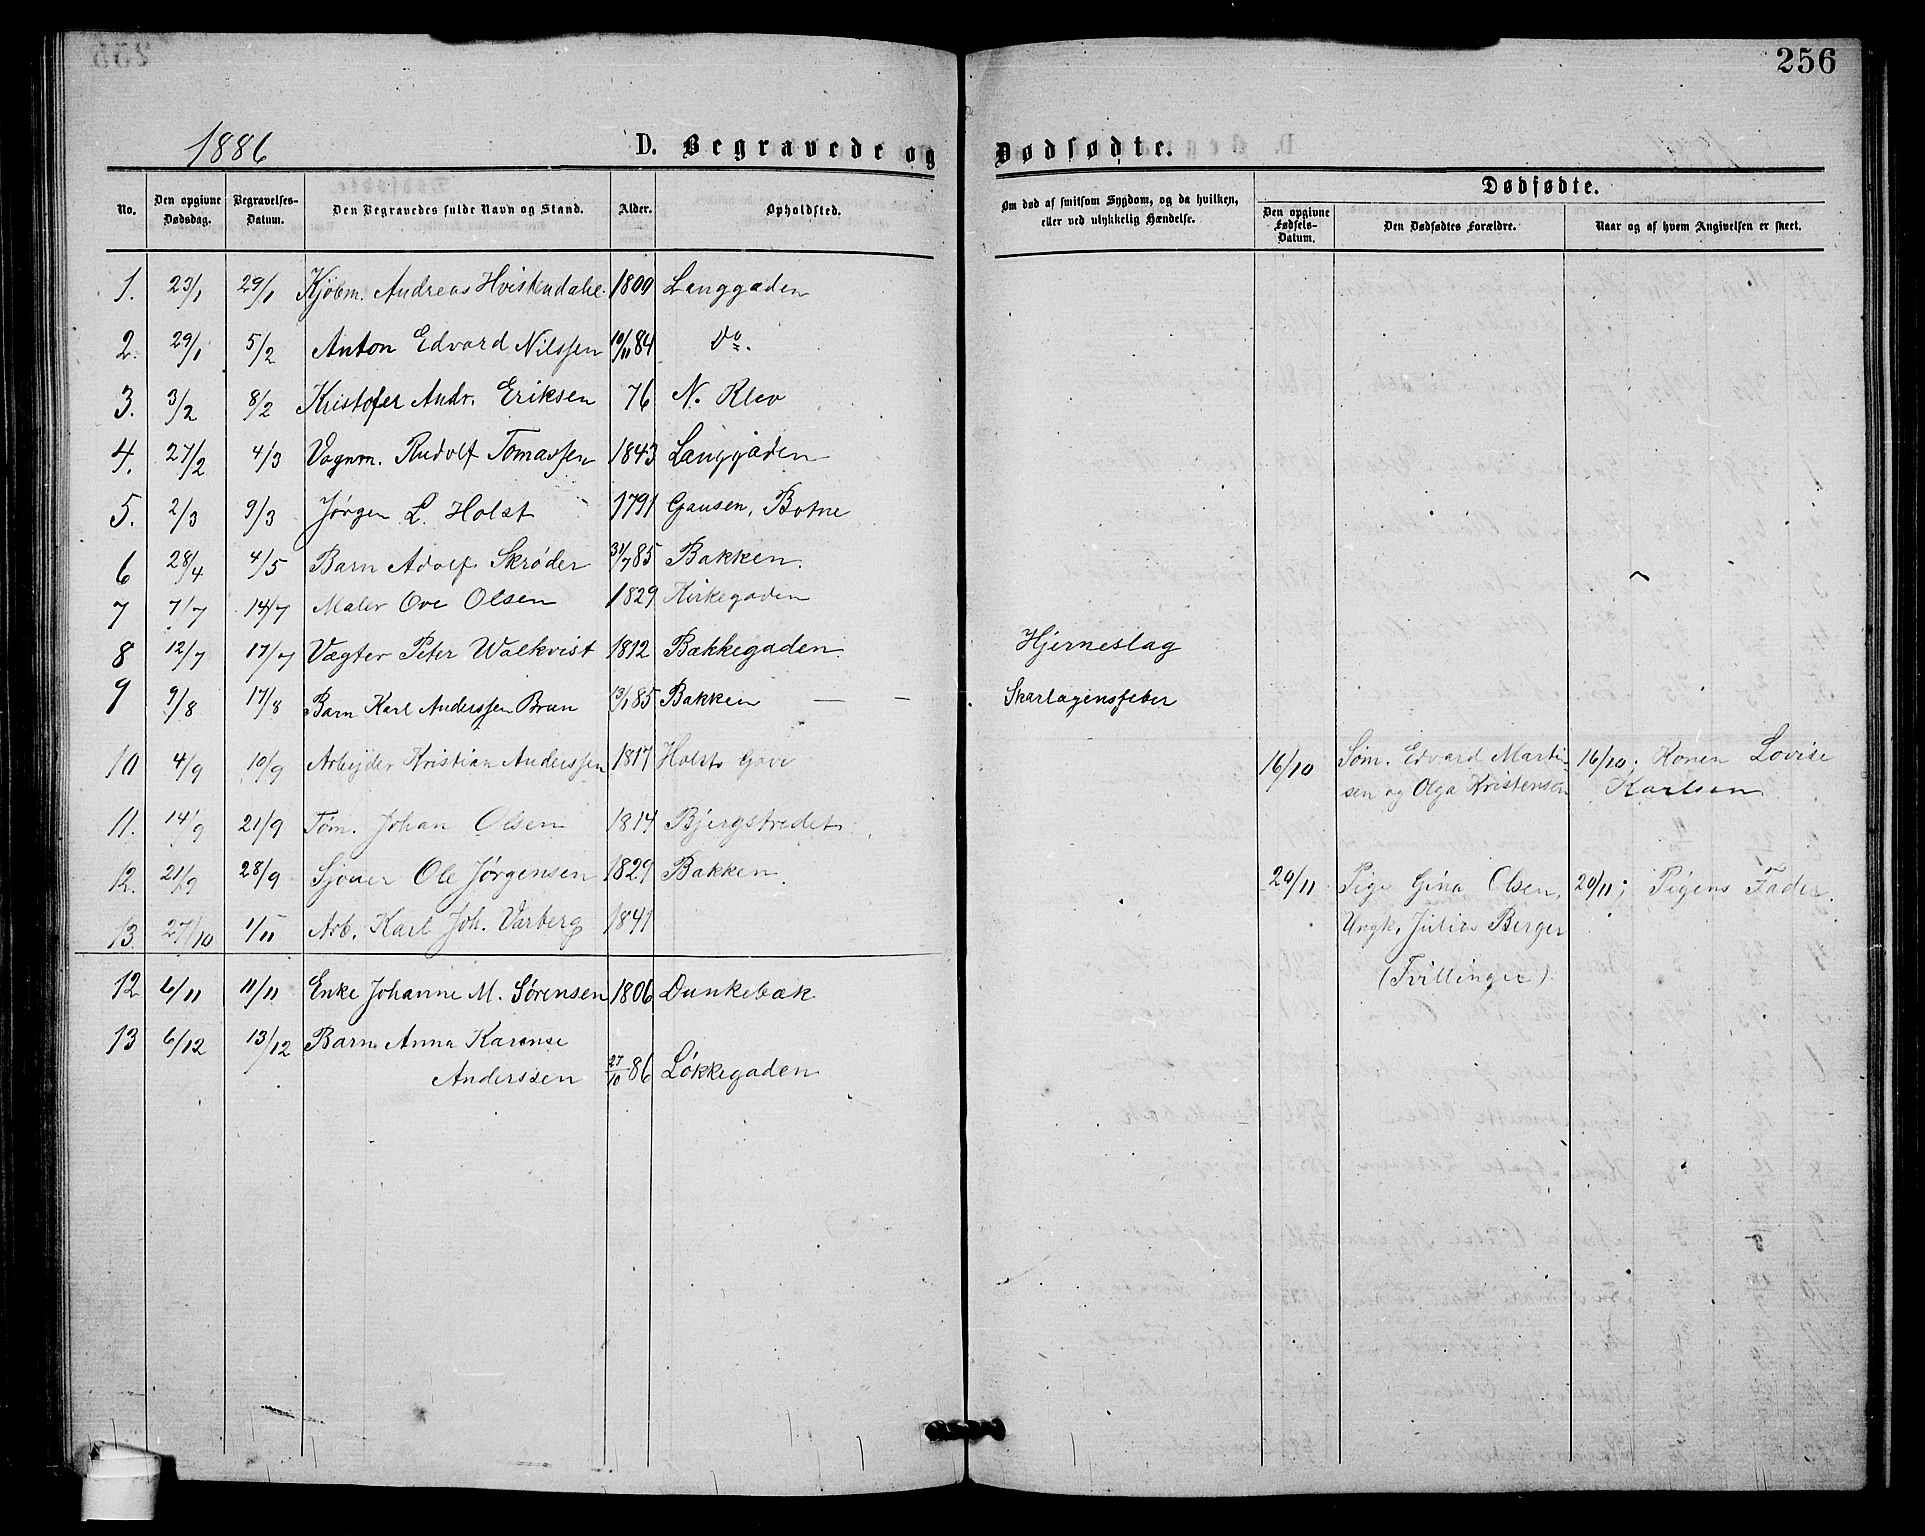 256
1886
D. Begravede og Dødsødte.
No. Den opgivne Dødsdag. Begravelses-Datum. Den Begravedes fulde Navn og Stand. Alder. Opholdsted. Om død af smitsom Sygdom, og da hvilken, eller ved ulykkelig Hændelse. Dødfødte.
Den opgivne Fødsels-Datum. Den Dødfødtes Forældre. Naar og af hvem Angivelsen er skeet.
1. 23/1 29/1 Kjøbm. Andreas Hvistendahl 1809 Langgaden
2. 29/1 5/2 Anton Edvard Nilssen 10/11 84 Do.
3. 3/2 8/2 Kristofer Andr. Eriksen 76 N. Klev
4. 27/2 4/3 Vognm. Rudolf Tomassen 1843 Langgaden
5. 2/3 9/3 Jørgen L. Holst 1791 Gausen, Botne
6 28/4 4/5 Barn Adolf Skrøder 31/7 85 Bakken.
7 7/7 14/7 Maler Ove Olsen 1829 Kirkegaden
8 12/7 17/7 Vægter Peter Walkvist 1812 Bakkegaden. Hjerneslag
9 9/8 17/8 Barn Karl Anderssen Brun 13/1 85 Bakken — - Skarlagensfeber
10 4/9 10/9 Arbejder Kristian Anderssen 1817 Holsts Gave 16/10 Søm. Edvard Marti- 16/10; Konen Lovise
sen og Olga Kristensen Karlsen
11. 14/9 21/9 Tøm. Johan Olsen 1814 Bjergstredet
12. 21/9 28/9 Sjouer Ole Jørgensen 1829 Bakken. 20/11 Pige Gina Olsen, 20/11; Pigens Fader.
13 27/10 1/11 Arb. Karl Joh. Varberg 1841 Ungk. Julius Berger
(Tvillinger)
12 6/11 11/11 Enke Johanne M. Sørensen 1806 Dunkebæk
13 6/12 13/12 Barn Anna Karense
Anderssen 27/10 86 Løkkegaden